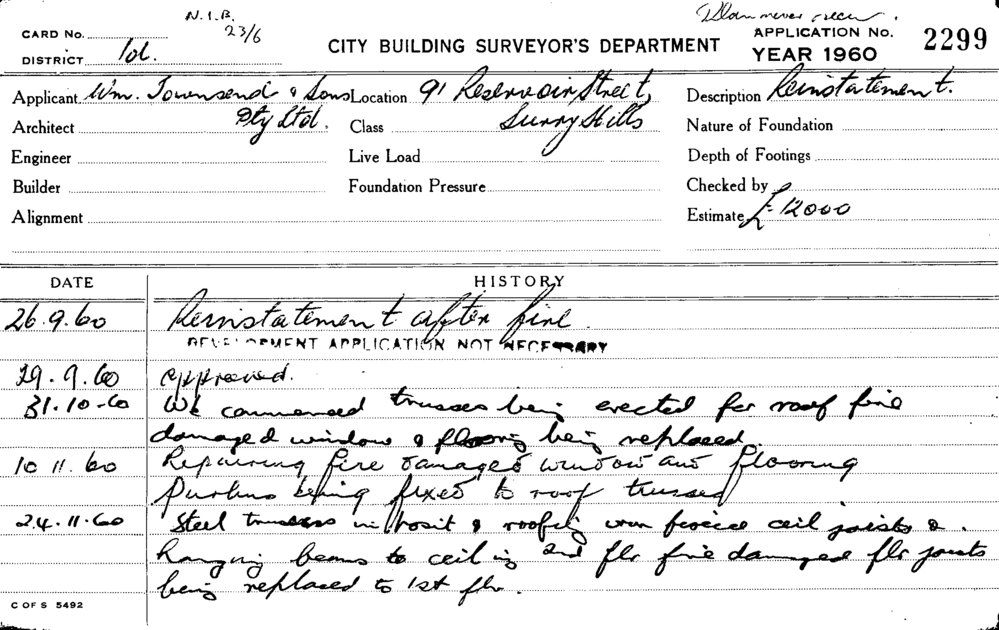 N.I.B.
23/6
Plan never seen.
CARD No.
DISTRICT
CITY BUILDING SURVEYOR'S DEPARTMENT
APPLICATION No.
YEAR 1960
2299
Applicant Wm. Townsend & Sons Pty Ltd.
Location 91 Reservoir Street, Surry Hills
Description Reinstatement.
Architect
Class
Nature of Foundation
Engineer
Live Load
Depth of Footings
Builder
Foundation Pressure
Checked by
Alignment
Estimate £12000
DATE
HISTORY
26.9.60 Reinstatement after fire.
DEVELOPMENT APPLICATION NOT NECESSARY
29.9.60 approved.
31.10.60 Wk commenced trusses being erected for roof fire
damaged window & flooring being replaced.
10 11. 60 Repairing fire damaged window and flooring
Purlins being fixed to roof trusses
24.11.60 Steel trusses in posit & roofing ceil joists &
hanging beams to ceiling 2nd flr fire damaged flr joists
being replaced to 1st flr.
C OF S 5492